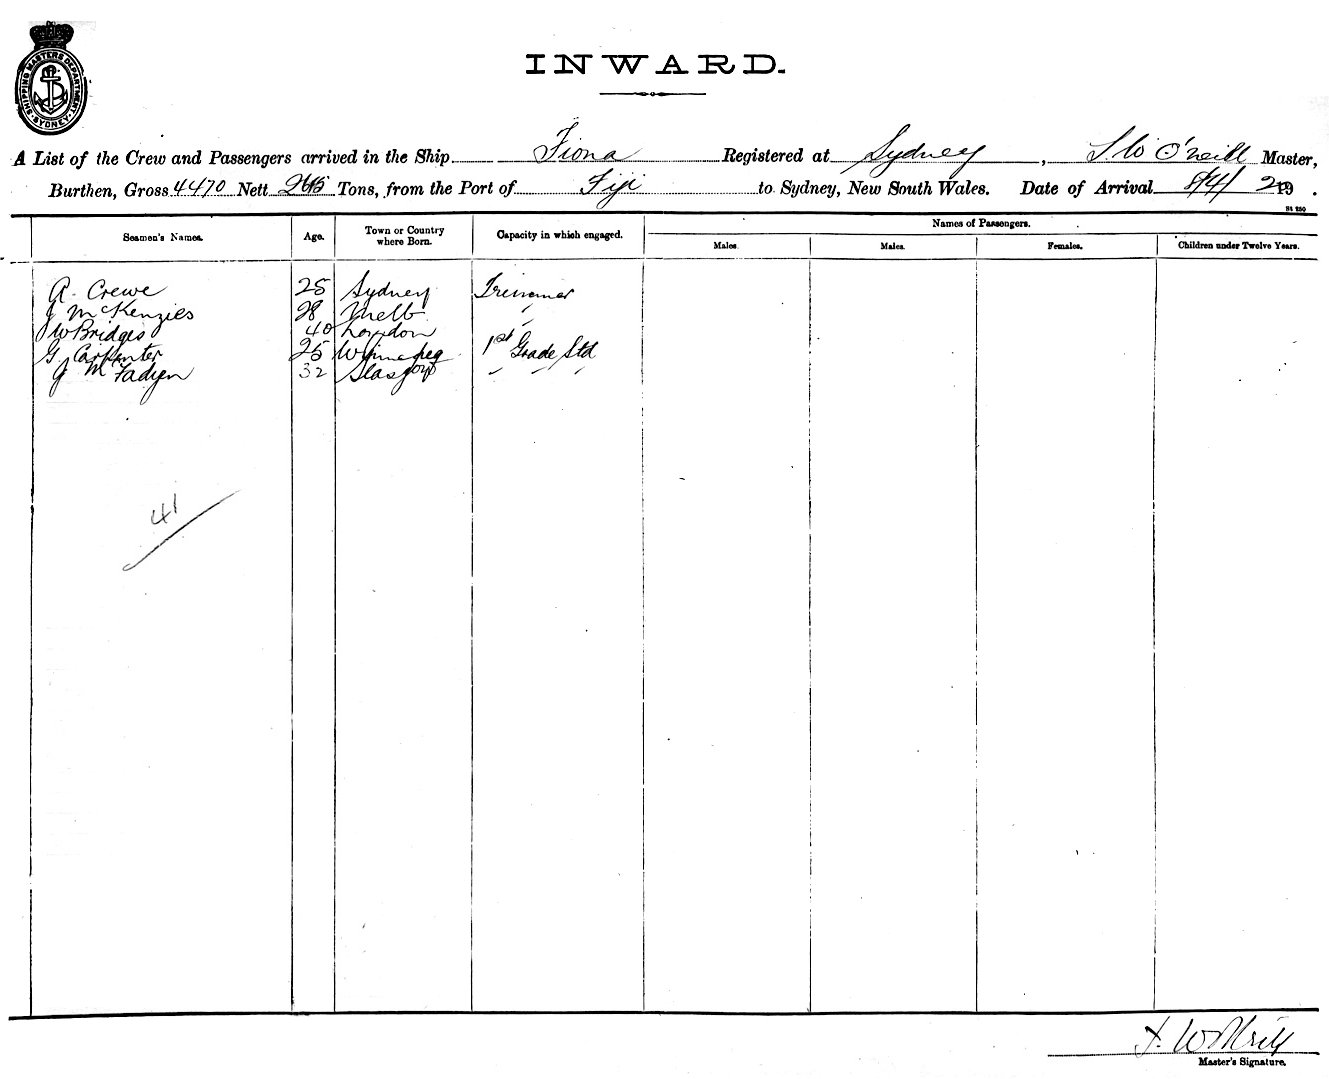 SHIPPING MASTERS DEPARTMENT SYDNEY
INWARD.
A List of the Crew and Passengers arrived in the Ship Fiona Registered at Sydney, S. W O'Neill Master,
Burthen, Gross 4470 Nett Tons, from the Port of Fiji to Sydney, New South Wales. Date of Arrival
St 250
Seamen's Names. Age. Town or Country where Born. Capacity in which engaged. Names of Passengers.
Males. Males. Females. Children under Twelve Years.
A. Crewe 25 Sydney Trimmer
J McKenzies 28 Melb "
J W Bridges 40 London "
G. Carpenter 25 Winnepeg 1st Grade Std
J McFadyen 32 Glasgow " " "
41
Master's Signature.